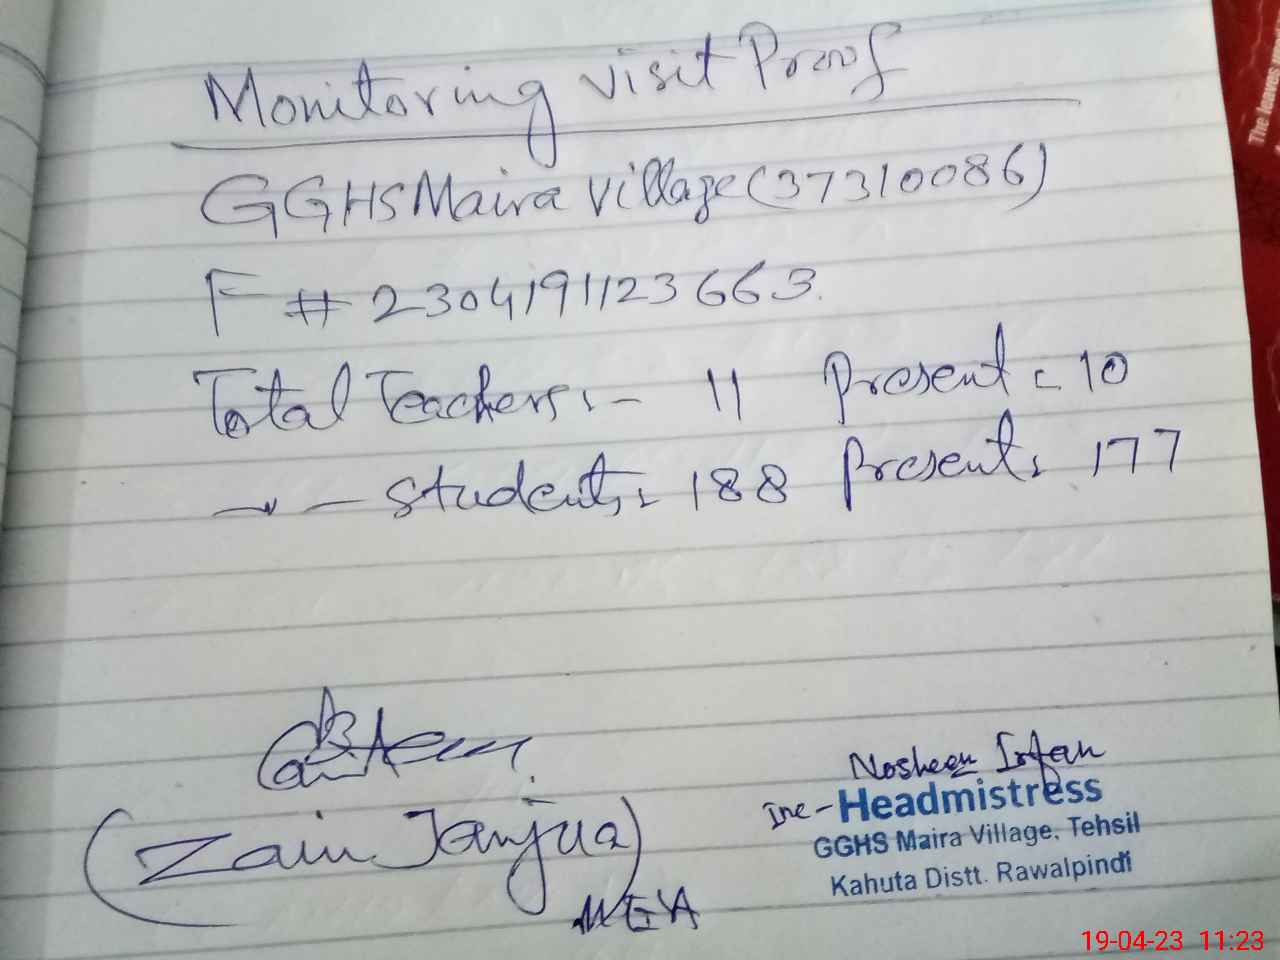 Monitoring visit Proof
GGHS Maira Village (37310086)
F # 2304191123663.
Total Teachers:- 11 Present = 10
— " — students = 188 Present = 177
(Zain Janjua)
MEA
Nosheen Irfan
Inc- Headmistress
GGHS Maira Village. Tehsil
Kahuta Distt. Rawalpindi
The leaves
19-04-23 11:23